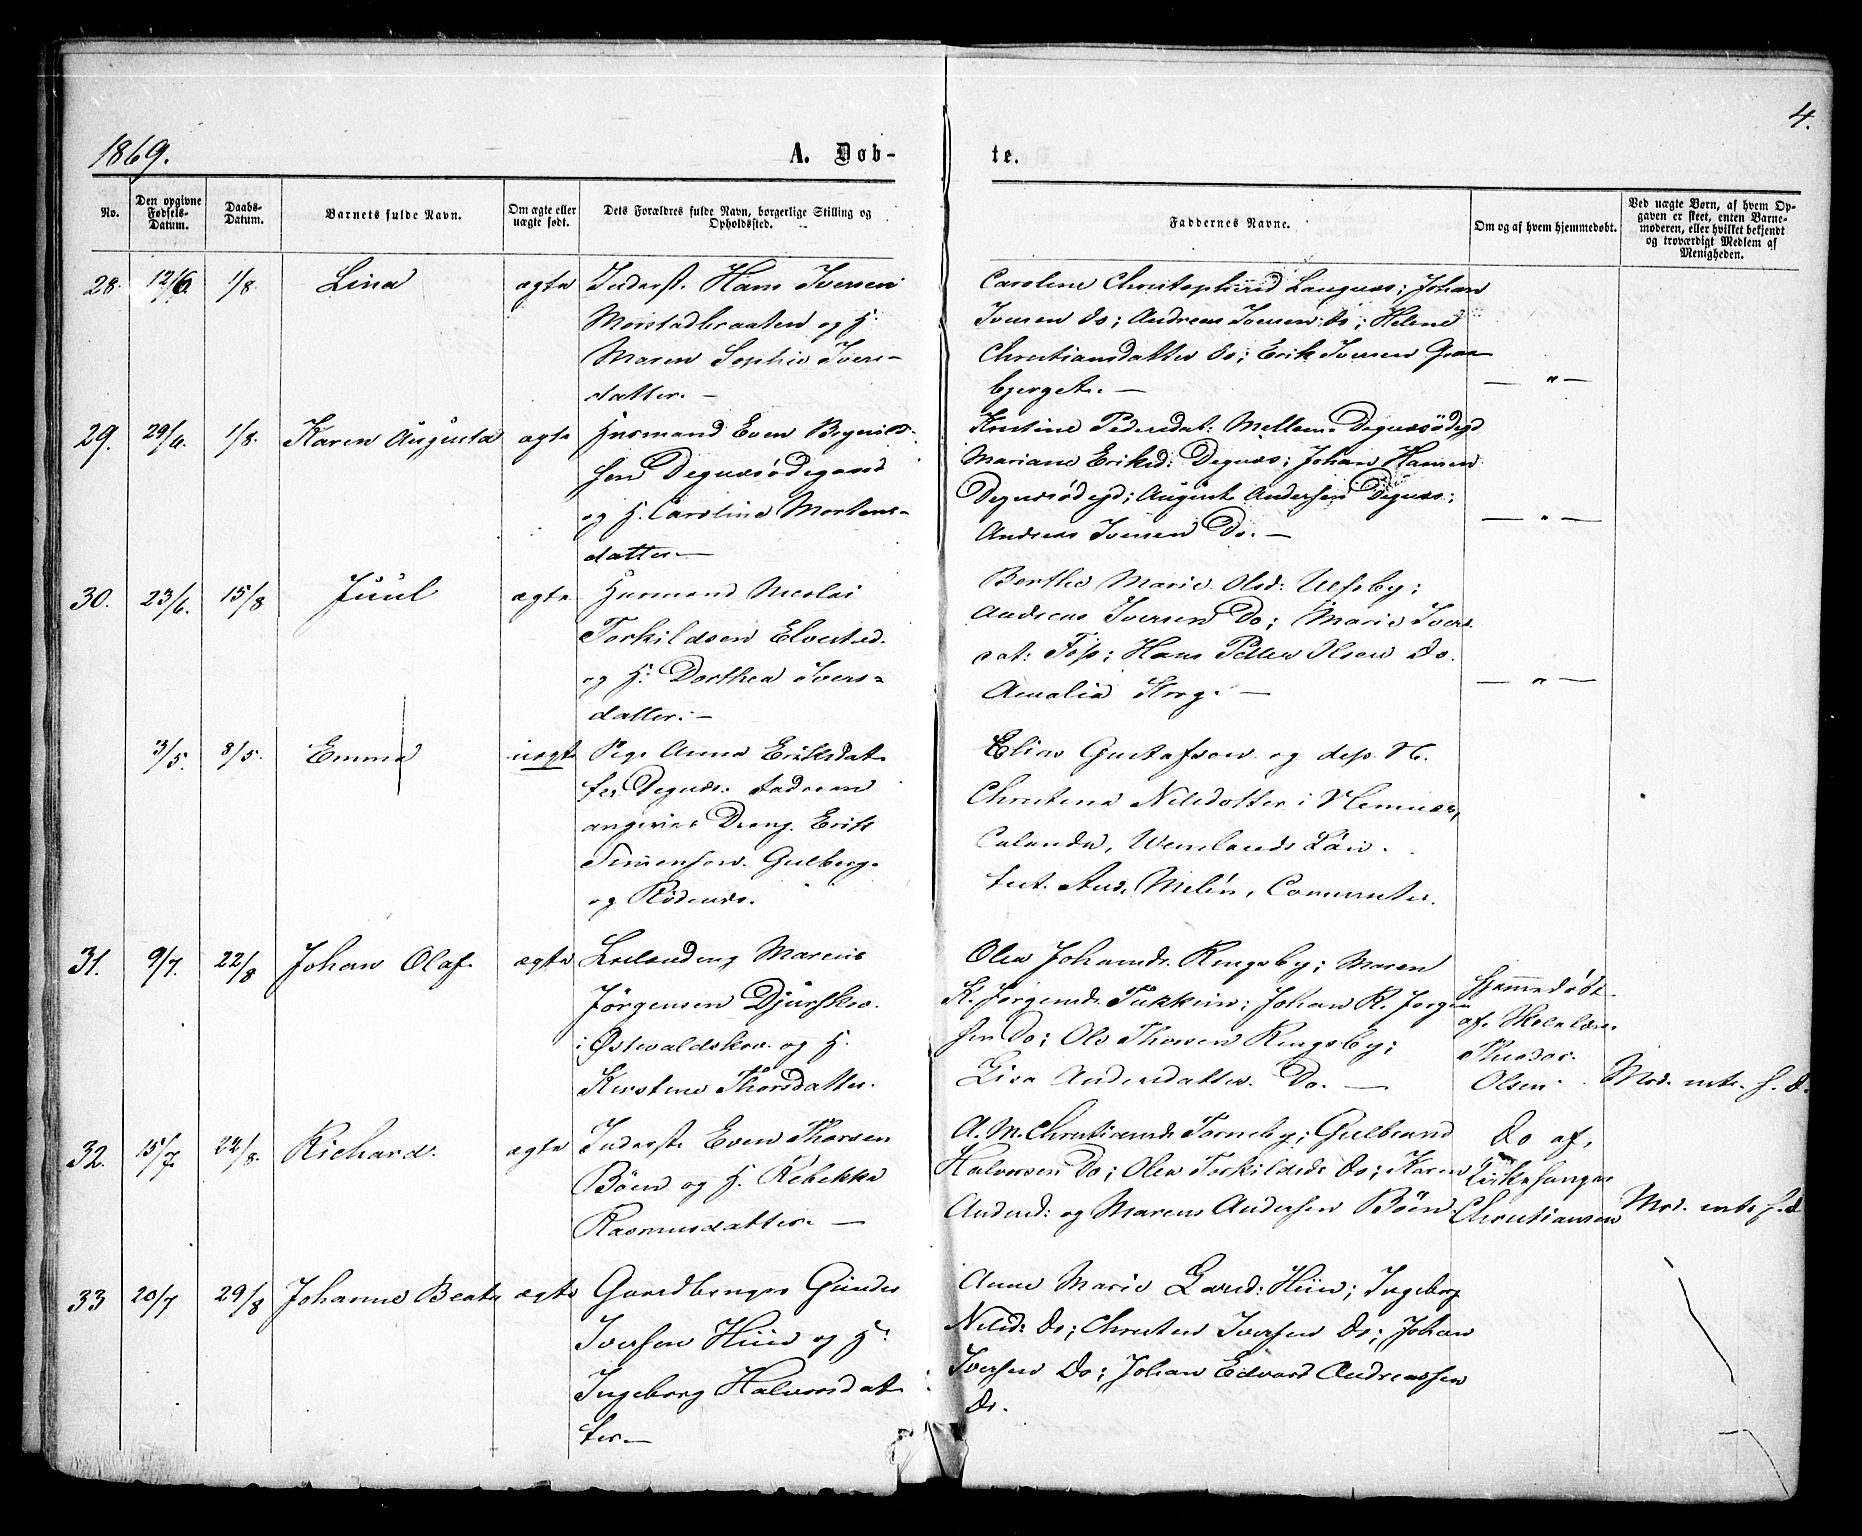 4.
1869.
A. Døb-
te.
No.
Den opgivne Fødsels-Datum.
Daabs-Datum.
Barnets fulde Navn.
Om ægte eller uægte født.
Dets Forældres fulde Navn, borgerlige Stilling og Opholdssted.
Faddernes Navne.
Om og af hvem hjemmedøbt.
Ved uægte Børn, af hvem Op-
gaven er skeet, enten Barne-
moderen, eller hvilket bekjendt
og troværdigt Medlem af
Menigheden.
28. 12/6. 1/8. Lina ægte Inderst. Hans Iversen
Morstadbraaten og H.
Maren Sophie Ivers-
datter. —
Caroline Christophersd Langnæs; Johan
Iversen do; Andreas Iversen do; Helene
Christiansdatter do; Erik Iversen
bjerget. —
— " —
29. 29/6. 1/8. Karen Augusta ægte Husmand Even
sen Degnæsødegaard
og H. Caroline Mortens-
datter. —
Kristine Pedersdat: Mellem Degnæsødegd
Mariane Eriksd: Degnæs; Johan Hansen
Degnæsødegd; August Andersen Degnæs;
Andreas Iversen Do. —
— " —
30. 23/6. 15/8 Juul ægte Husmand Nicolai
Torkildsen Elvestad.
og H: Dorthea Ivers-
datter. —
Berthe Marie Olsd: Ulfsby;
Andreas Iversen Do; Marie Ivers
dat: Foss; Hans Petter Olsen do.
Amalia Storg. —
— " —
3/5. 8/5. Emma uægte Pige Anna Eriksdat
ter Degnæs.
angiven Dreng. Erik
Simensen. Gulberg.
og Rødenæs.
Elias Gustafson og dess H.
Christina Nilsdotter i
Wermlands Län.
And. Melén, Comminister.
31. 9/7. 22/8 Johan Olaf. ægte Leilænding Marcus
Jörgensen Djurskov.
i Østvaldskov. og H.
Kirstine Thorsdatter.
Olea Johannesdr. Kingsby; Maren
K. Jörgensdr. Tukkun; Johan K. Jörgen
sen do; Ole Thorsen Kingsby;
Lisa Andersdatter. Do. —
Hjemmedøbt
af. Skolelærer
Theodor.
Olsen.
Mod. intr. s. D.
32. 15/7. 22/8. Richard. ægte Inderst. Even Thorsen
Böen og H. Rebekka
Rasmusdatter. —
A. M. Christiansdr. Torneby; Gulbrand
Halvorsen Do; Olea Torkildsdr. do; Karen
Andersd: og Marcus Andersen Böen.
Do af.
Kirkesanger
Christiansen
Mod. intr. s. d
33 20/7 29/8 Johanne Beate ægte Gaardbruger Gunder
Iversen Hüin og H:
Ingeborg Halvorsdat
ter. —
Anne Marie Larsd: Hiin; Ingeborg
Nilsd: do; Christen Iversen do; Johan
Iversen Do; Johan Edvard Andreassen
Do.